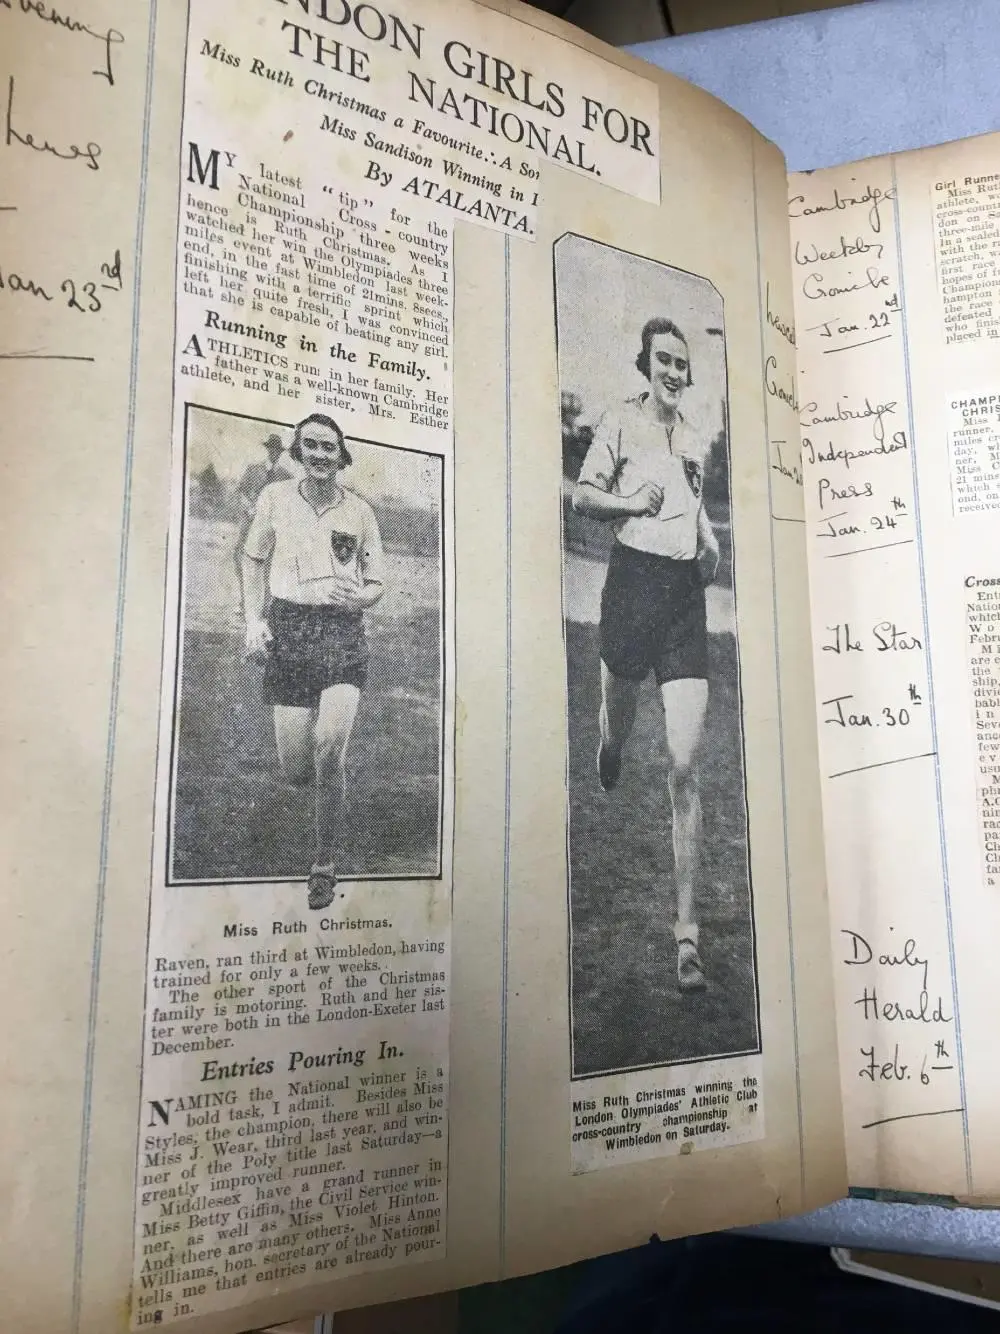 vening
Jan 23rd
NDON GIRLS FOR
THE NATIONAL.
Miss Ruth Christmas a Favourite.∴ A
Miss Sandison Winning in
By ATALANTA.
MY latest "tip" for the
National Cross-country
Championship three weeks
hence is Ruth Christmas. As I
watched her win the Olympiades three
miles event at Wimbledon last week-
end, in the fast time of 21mins. 8secs.,
finishing with a terrific sprint which
left her quite fresh, I was convinced
that she is capable of beating any girl.
Running in the Family.
ATHLETICS run: in her family. Her
father was a well-known Cambridge
athlete, and her sister, Mrs. Esther
Miss Ruth Christmas.
Raven, ran third at Wimbledon, having
trained for only a few weeks.
The other sport of the Christmas
family is motoring. Ruth and her sis-
ter were both in the London-Exeter last
December.
Entries Pouring In.
NAMING the National winner is a
bold task, I admit. Besides Miss
Styles, the champion, there will also be
Miss J. Wear, third last year, and win-
ner of the Poly title last Saturday—a
greatly improved runner.
Middlesex have a grand runner in
Miss Betty Giffin, the Civil Service win-
ner, as well as Miss Violet Hinton.
And there are many others. Miss Anne
Williams, hon. secretary of the National
tells me that entries are already pour-
ing in.
Miss Ruth Christmas winning the
London Olympiades' Athletic Club
cross-country championship at
Wimbledon on Saturday.
Cambridge
Weekly
Cronicle
Jan. 22nd
Cambridge
Independent
Press
Jan. 24th
The Star
Jan. 30th
Daily
Herald
Feb. 6th
Girl Runne
Miss Rut
athlete, wo
cross-count
don on S
three-mile
In a sealed
with the r
scratch, wa
first race
hopes of
Champion
hampton
the race
defeated
who finis
placed in
CHAMPI
CHRIS
Miss
runner,
miles cr
day, wh
ner, M
Miss C
21 mins
which s
ond, on
received
Cross
Ent
Natio
which
Wo
Febru
are e
the
ship,
divid
babl
in
Seve
ance
few
ev
usu